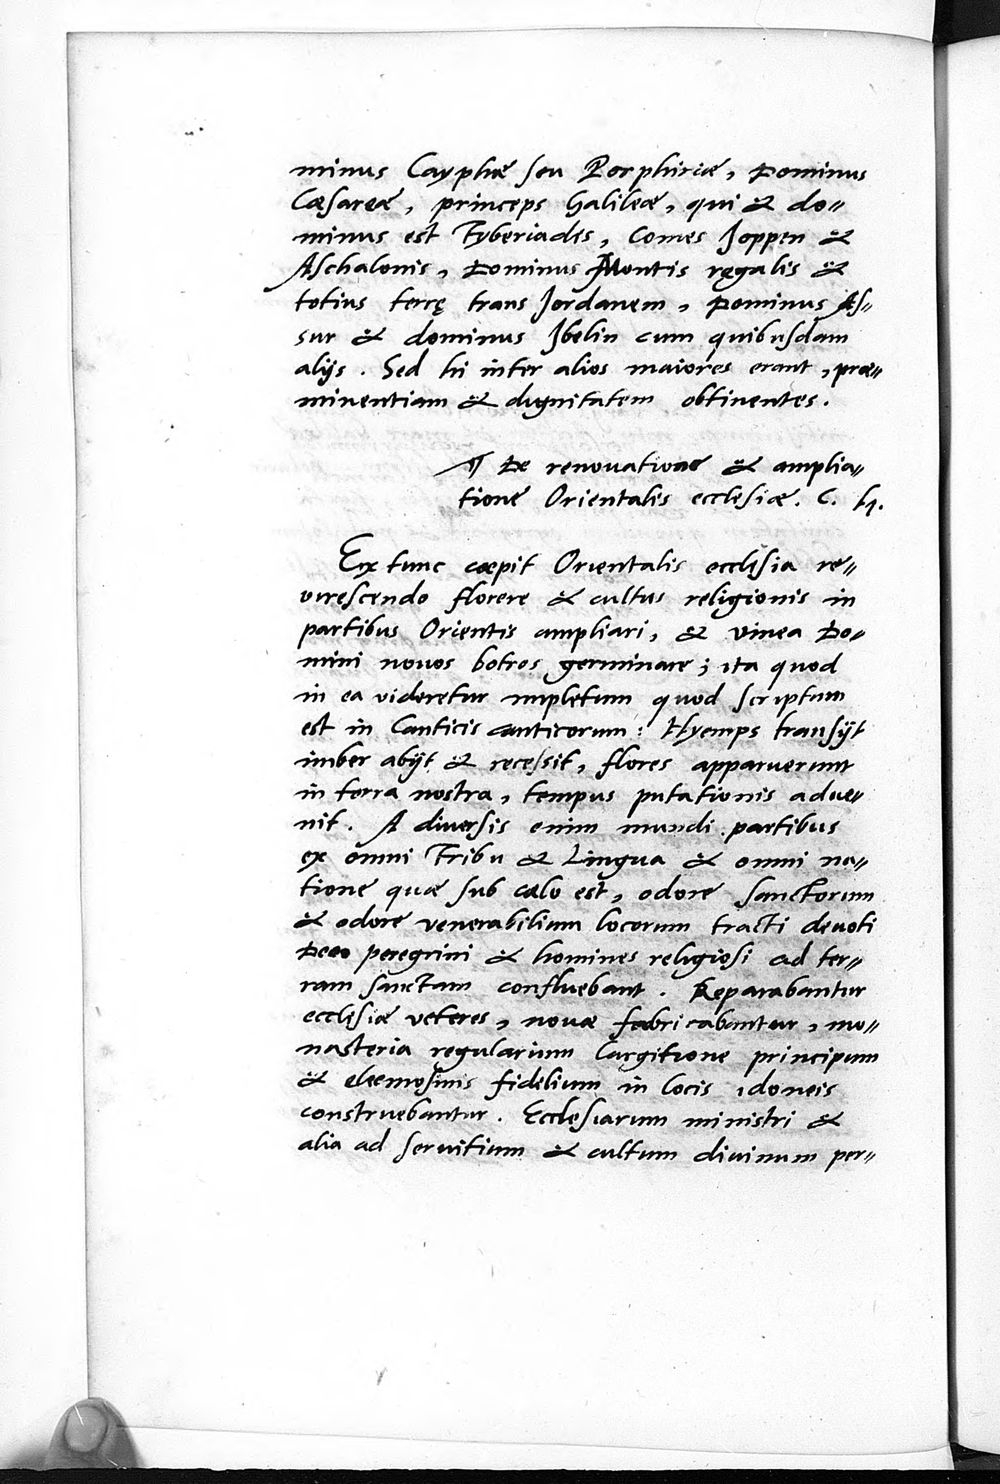 minus Cayphæ seu Porphiriæ, Dominus
Cæsareæ, princeps Galileæ, qui & do//
minus est Tyberiadis, Comes Joppen &
Aschalonis, Dominus Montis regalis &
totius terrę trans Jordanem, Dominus As//
sur & dominus Jbelin cum quibusdam
alijs. Sed hi inter alios maiores erant, præe//
minentiam & dignitatem obtinentes.
¶ De renouatione & amplia//
tione Orientalis ecclesiæ. C.
Ex tunc cœpit Orientalis ecclesia re//
uirescendo florere & cultus religionis in
partibus Orientis ampliari, & vinea Do//
mini nouos botros germinare; ita quod
in ea videretur impletum quod scriptum
est in Canticis canticorum: Hyemps transijt
imber abijt & recessit, flores apparuerunt
in terra nostra, tempus putationis adue//
nit. A diuersis enim mundi partibus
ex omni Tribu & Lingua & omni na//
tione quæ sub cælo est, odore sanctorum
& odore venerabilium locorum tracti deuoti
Deo peregrini & homines religiosi ad ter//
ram sanctam confluebant. Reparabantur
ecclesiæ veteres, nouæ fabricabantur, mo//
nasteria regularium largitione principum
& eleemosinis fidelium in locis idoneis
construebantur. Ecclesiarum ministri &
alia ad seruitium & cultum diuinum per//